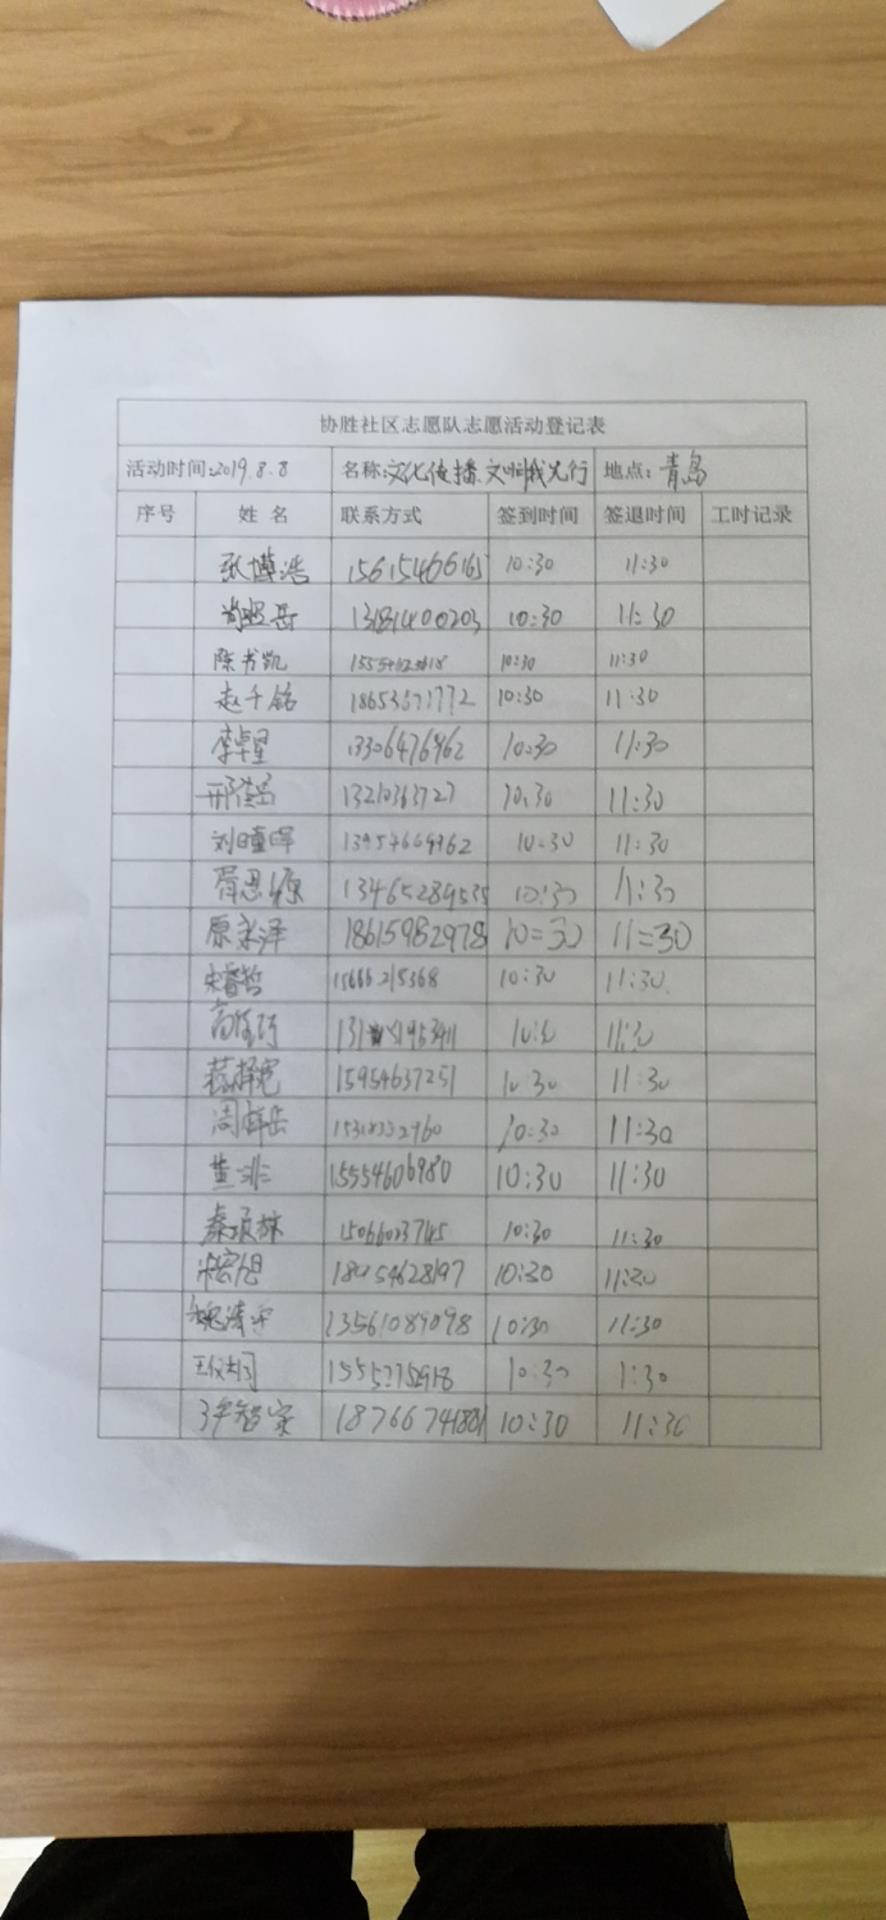 协胜社区志愿队志愿活动登记表
活动时间:2019.8.8 名称:文化传播.文明我先行 地点:青岛
序号 姓名 联系方式 签到时间 签退时间 工时记录
张博浩 15615466165 10:30 11:30
岳 13181400203 10:30 11:30
陈书凯 10:30 11:30
赵千铭 18653671772 10:30 11:30
李卓星 13306476962 10:30 11:30
邢 13210363727 10:30 11:30
刘瞳晖 13954669362 10:30 11:30
胥思源 13465289535 10:30 11:30
原泽 18615982978 10=30 11=30
宋睿哲 15666215368 10:30 11:30
高 10:30 11:30
15954637251 10:30 11:30
周 10:30 11:30
黄非 15554606980 10:30 11:30
秦 15066023745 10:30 11:30
宋宏旭 18954628197 10:30 11:30
魏 13561089098 10:30 11:30
王 10:30 1:30
智 18766741881 10:30 11:30